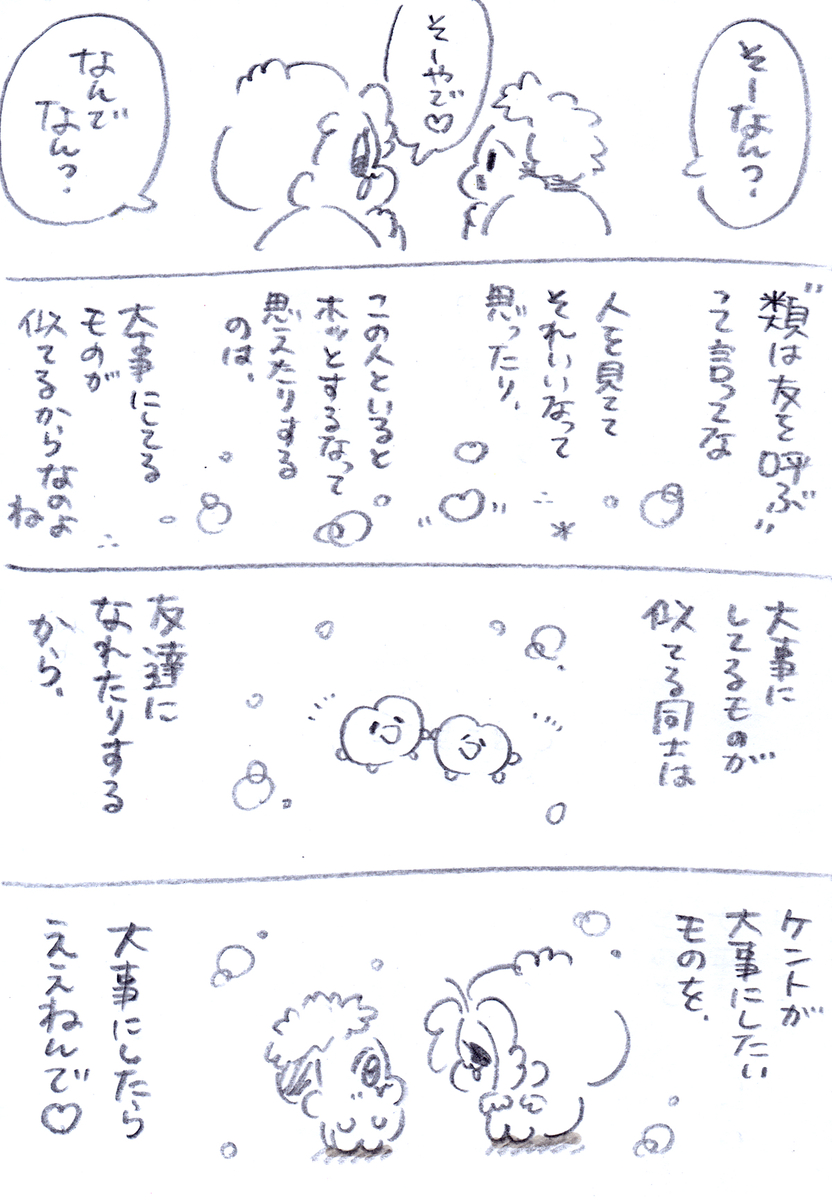 そーなん?
そーやで♡
なんで
なん?
"類は友を呼ぶ"
って言ってな
人を見てて
それいいなって
思ったり、
この人といると
ホッとするなって
思えたりする
のは、
大事にしてる
ものが
似てるからなのよ
ね
大事に
してるものが
似てる同士は
友達に
なれたりする
から、
ケントが
大事にしたい
ものを、
大事にしたら
ええねんで♡